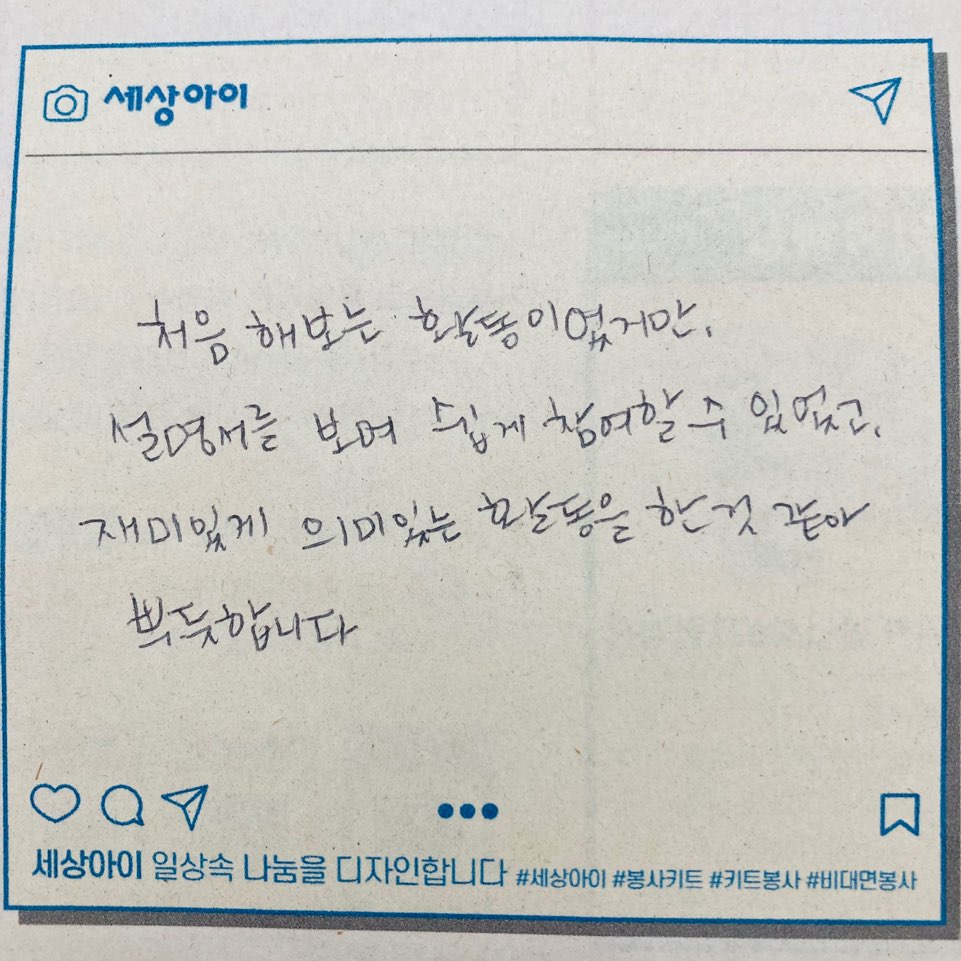 세상아이
처음 해보는 활동이었지만,
설명서를 보며 쉽게 참여할 수 있었고,
재미있게 의미있는 활동을 한 것 같아
뿌듯합니다
세상아이 일상속 나눔을 디자인합니다 #세상아이 #봉사키트 #키트봉사 #비대면봉사